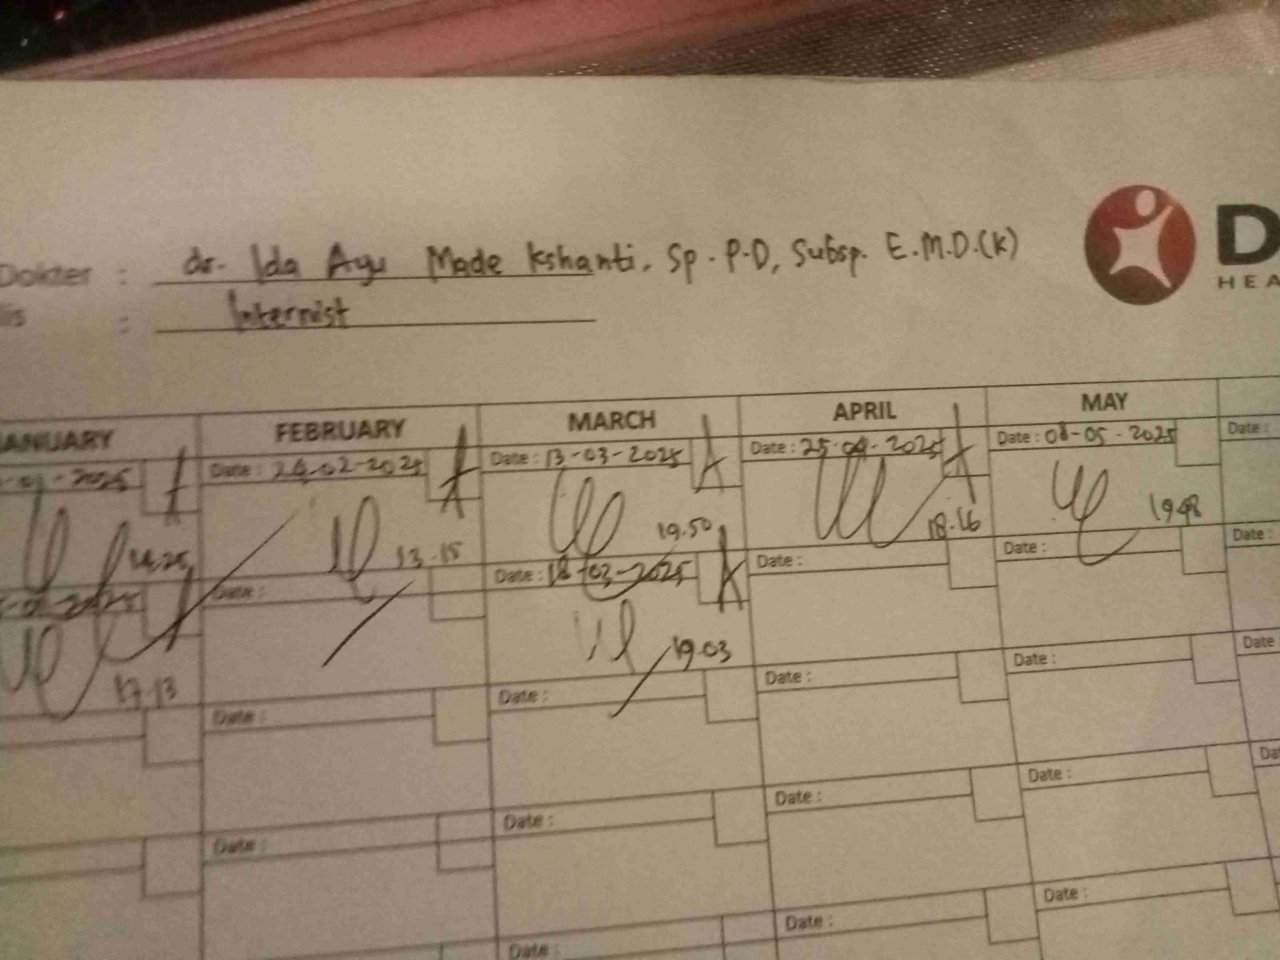 Dokter : dr. Ida Ayu Made Kshanti, Sp.P.D, Subsp. E.M.D.(K)
lis : Internist
D
HEA
ANUARY FEBRUARY MARCH APRIL MAY
-2025 Date : 24-02-2025 Date : 13-03-2025 Date : 25-04-2025 Date : 08-05-2025 Date :
14.25 13.15 19.50 18.16
2025 Date : Date : 18-03-2025 Date : Date : Date :
17.13 19.03
Date : Date : Date : Date : Date
Date : Date : Date : Date : Da
Date : Date : Date :